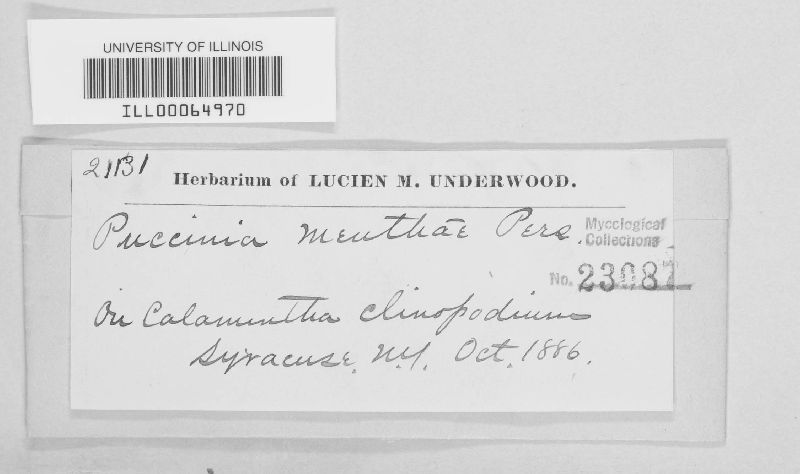 UNIVERSITY OF ILLINOIS
ILL00064970
21131
Herbarium of LUCIEN M. UNDERWOOD.
Puccinia menthae Pers.
Mycological
Collections
No. 23087
On Calamintha clinopodium
Syracuse, N.Y. Oct. 1886.